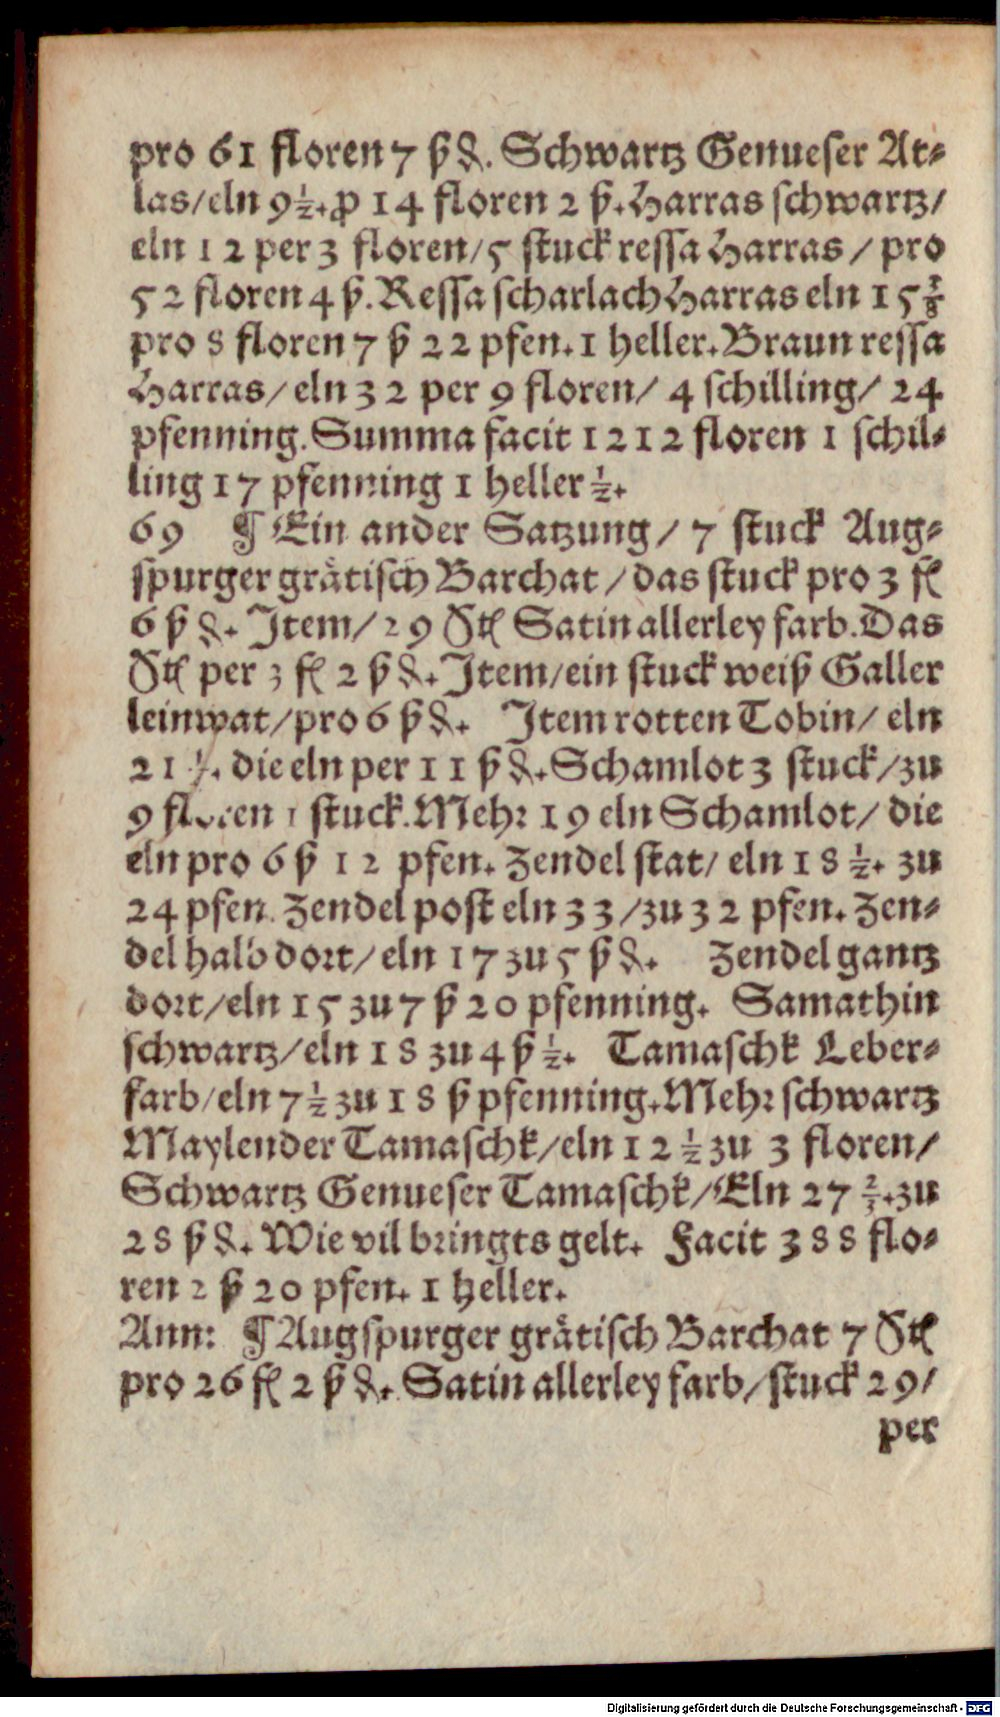 pro 61 floren 7 ß ₰. Schwartz Genueser At-
las/eln 9½. ꝓ 14 floren 2 ß. Harras schwartz/
eln 12 per 3 floren/5 stuck ressa Harras / pro
52 floren 4 ß. Ressa scharlach Harras eln 15⅞
pro 8 floren 7 ß 22 pfen. 1 heller. Braun ressa
Harras/ eln 32 per 9 floren/ 4 schilling/ 24
pfenning. Summa facit 1212 floren 1 schil-
ling 17 pfenning 1 heller ½.
69 ¶ Ein ander Satzung/ 7 stuck Aug-
spurger grätisch Barchat /das stuck pro 3 fl
6 ß ₰. Item/29 Stl Satin allerley farb. Das
Stl per 3 fl 2 ß ₰. Item/ein stuck weiß Galler
leinwat/pro 6 ß ₰. Item rotten Tobin/ eln
21 . die eln per 11 ß ₰. Schamlot 3 stuck/zu
9 floren 1 stuck. Mehr 19 eln Schamlot/ die
eln pro 6 ß 12 pfen. Zendel stat/ eln 18½. zu
24 pfen. Zendel post eln 33/zu 32 pfen. Zen-
del halb dort/ eln 17 zu 5 ß ₰. Zendel gantz
dort/eln 15 zu 7 ß 20 pfenning. Samathin
schwartz/eln 18 zu 4 ß ½. Tamaschk Leber-
farb/eln 7½ zu 18 ß pfenning. Mehr schwartz
Maylender Tamaschk/eln 12½ zu 3 floren/
Schwartz Genueser Tamaschk/Eln 27⅔. zu
28 ß ₰. Wie vil bringts gelt. Facit 388 flo-
ren 2 ß 20 pfen. 1 heller.
Ann: ¶ Augspurger grätisch Barchat 7 Stl
pro 26 fl 2 ß ₰. Satin allerley farb/stuck 29/
per
Digitalisierung gefördert durch die Deutsche Forschungsgemeinschaft - DFG